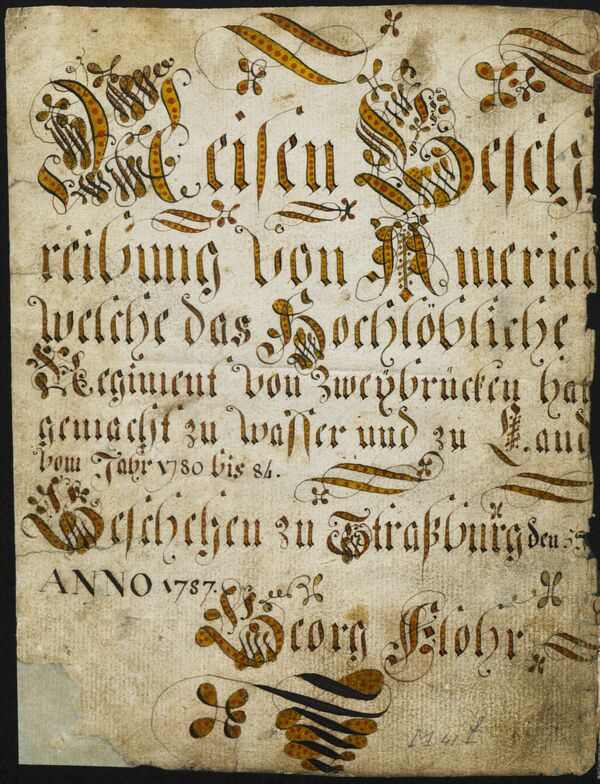 Reisen Besch
reibung von America
welche das Hochlöbliche
Regiment von Zweybrücken hat
gemacht zu wasser und zu Land
vom Jahr 1780 bis 84.
Geschehen zu Straßburg den
ANNO 1787.
Georg Flohr